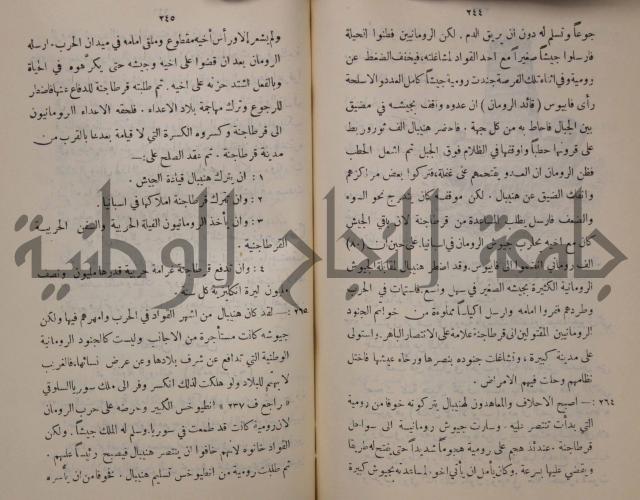 ٢٤٤
جوعاً وتسلم له دون ان يريق الدم . لكن الرومانيين فطنوا لهذه الحيلة
فارسلوا جيشاً صغيراً مع احد القواد لمشاغلته، فيخفف الضغط عن
رومية وفي اثناء تلك الفرصة جندت رومية جيشاً كامل العدد والاسلحة
رأى فابيوس ( قائد الرومان ) ان عدوه واقف بجيشه في مضيق
بين الجبال فاحاط به من كل جهة . فاحضر هنيبال الف ثور وربط
على قرونها حطباً واوقفها في الظلام فوق الجبل ثم اشعل الحطب
فظن الرومان ان العدو يقتحمهم على غفلة، فتركوا بعض مراكزهم
وانفك الضيق عن هنيبال . لكن موقفه كان يتدرج نحو السوء
والضعف فارسل يطلب المساعدة من قرطاجنة لان باقي الجيش
كان مع اخيه يحارب جيوش الرومان في اسبانيا. على حين ان (٨٠)
الف روماني انضموا الى فابيوس. وقد اضطر هنيبال لمقابلة الجيوش
الرومانية الكثيرة بجيشه الصغير في سهل واسع فاستمات في الحرب
وطردهم فتروا امامه وارسل اكياساً مملوءة من خواتم الجنود
الرومانيين المقتولين الى قرطاجنة علامة على الانتصار الباهر. واستولى
على مدينة كبيرة ، وتشاغلت جنوده بنصرها ورخاء عيشها فاختل
نظامهم وحلت فيهم الامراض .
٢٦٤ :— اصبح الاحلاف والمعاهدون لهنيبال يتركونه خوفا من رومية
التي بدأت تنتصر عليه . وسارت جيوش رومانية الى سواحل
قرطاجنة . عندئذ هجم على رومية هجوماً شديداً حتى يفتح له طريقا
ويقضي عليها بسرعة . وكان يأمل ان يأتي اخوه لمساعدته بجيوش كبيرة
٢٤٥
ولم يشعر الا ورأس أخيه مقطوع وملقى امامه في ميدان الحرب. ارسله
الرومان بعد ان قضوا على اخيه وجيشه حتى يكرهوه في الحياة
وبالفعل اشتد حزنه على اخيه . ثم طلبته قرطاجنة للدفاع عنها فاضطر
للرجوع وترك مهاجمة بلاد الاعداء . فلحقه الاعداء الرومانيون
الى قرطاجنة وكسروه الكسرة التي لا قيامة بعدها بالقرب من
مدينة قرطاجنة . ثم عقد الصلح على :—
١ : ان يترك هنيبال قيادة الجيش .
٢ : وان تترك قرطاجنة املاكها في اسبانيا .
٣ : وان يأخذ الرومانيون الفيلة الحربية والسفن الحربية
القرطاجنية .
٤ : وان تدفع قرطاجنة غرامة حربية قدرها مليون ونصف
مليون ليرة انكليزية كل سنة .
٢٦٥ :— لقد كان هنيبال من اشهر القواد في الحرب وامهرهم فيها ولكن
جيوشه كانت مستأجرة من الاجانب وليست كالجنود الرومانية
الوطنية التي تدافع عن شرف بلادها وعن عرض نسائها، فالغريب
لا يهتم للبلاد ولو هلكت لذلك انكسر وفر الى ملك سوريا السلوقي
« راجع ف ٢٣٧ » انطيوخس الكبير وحرضه على حرب الرومان
لان رومية كانت قد طمعت في سوريا. وسلم له الملك جيشاً . ولكن
القواد خانوه لانهم خافوا ان ينتصر هنيبال فيصبح رئيساً عليهم .
ثم طلبت رومية من انطيوخس تسليم هنيبال . فخوفا من ان يأسره
جامعة النجاح الوطنية